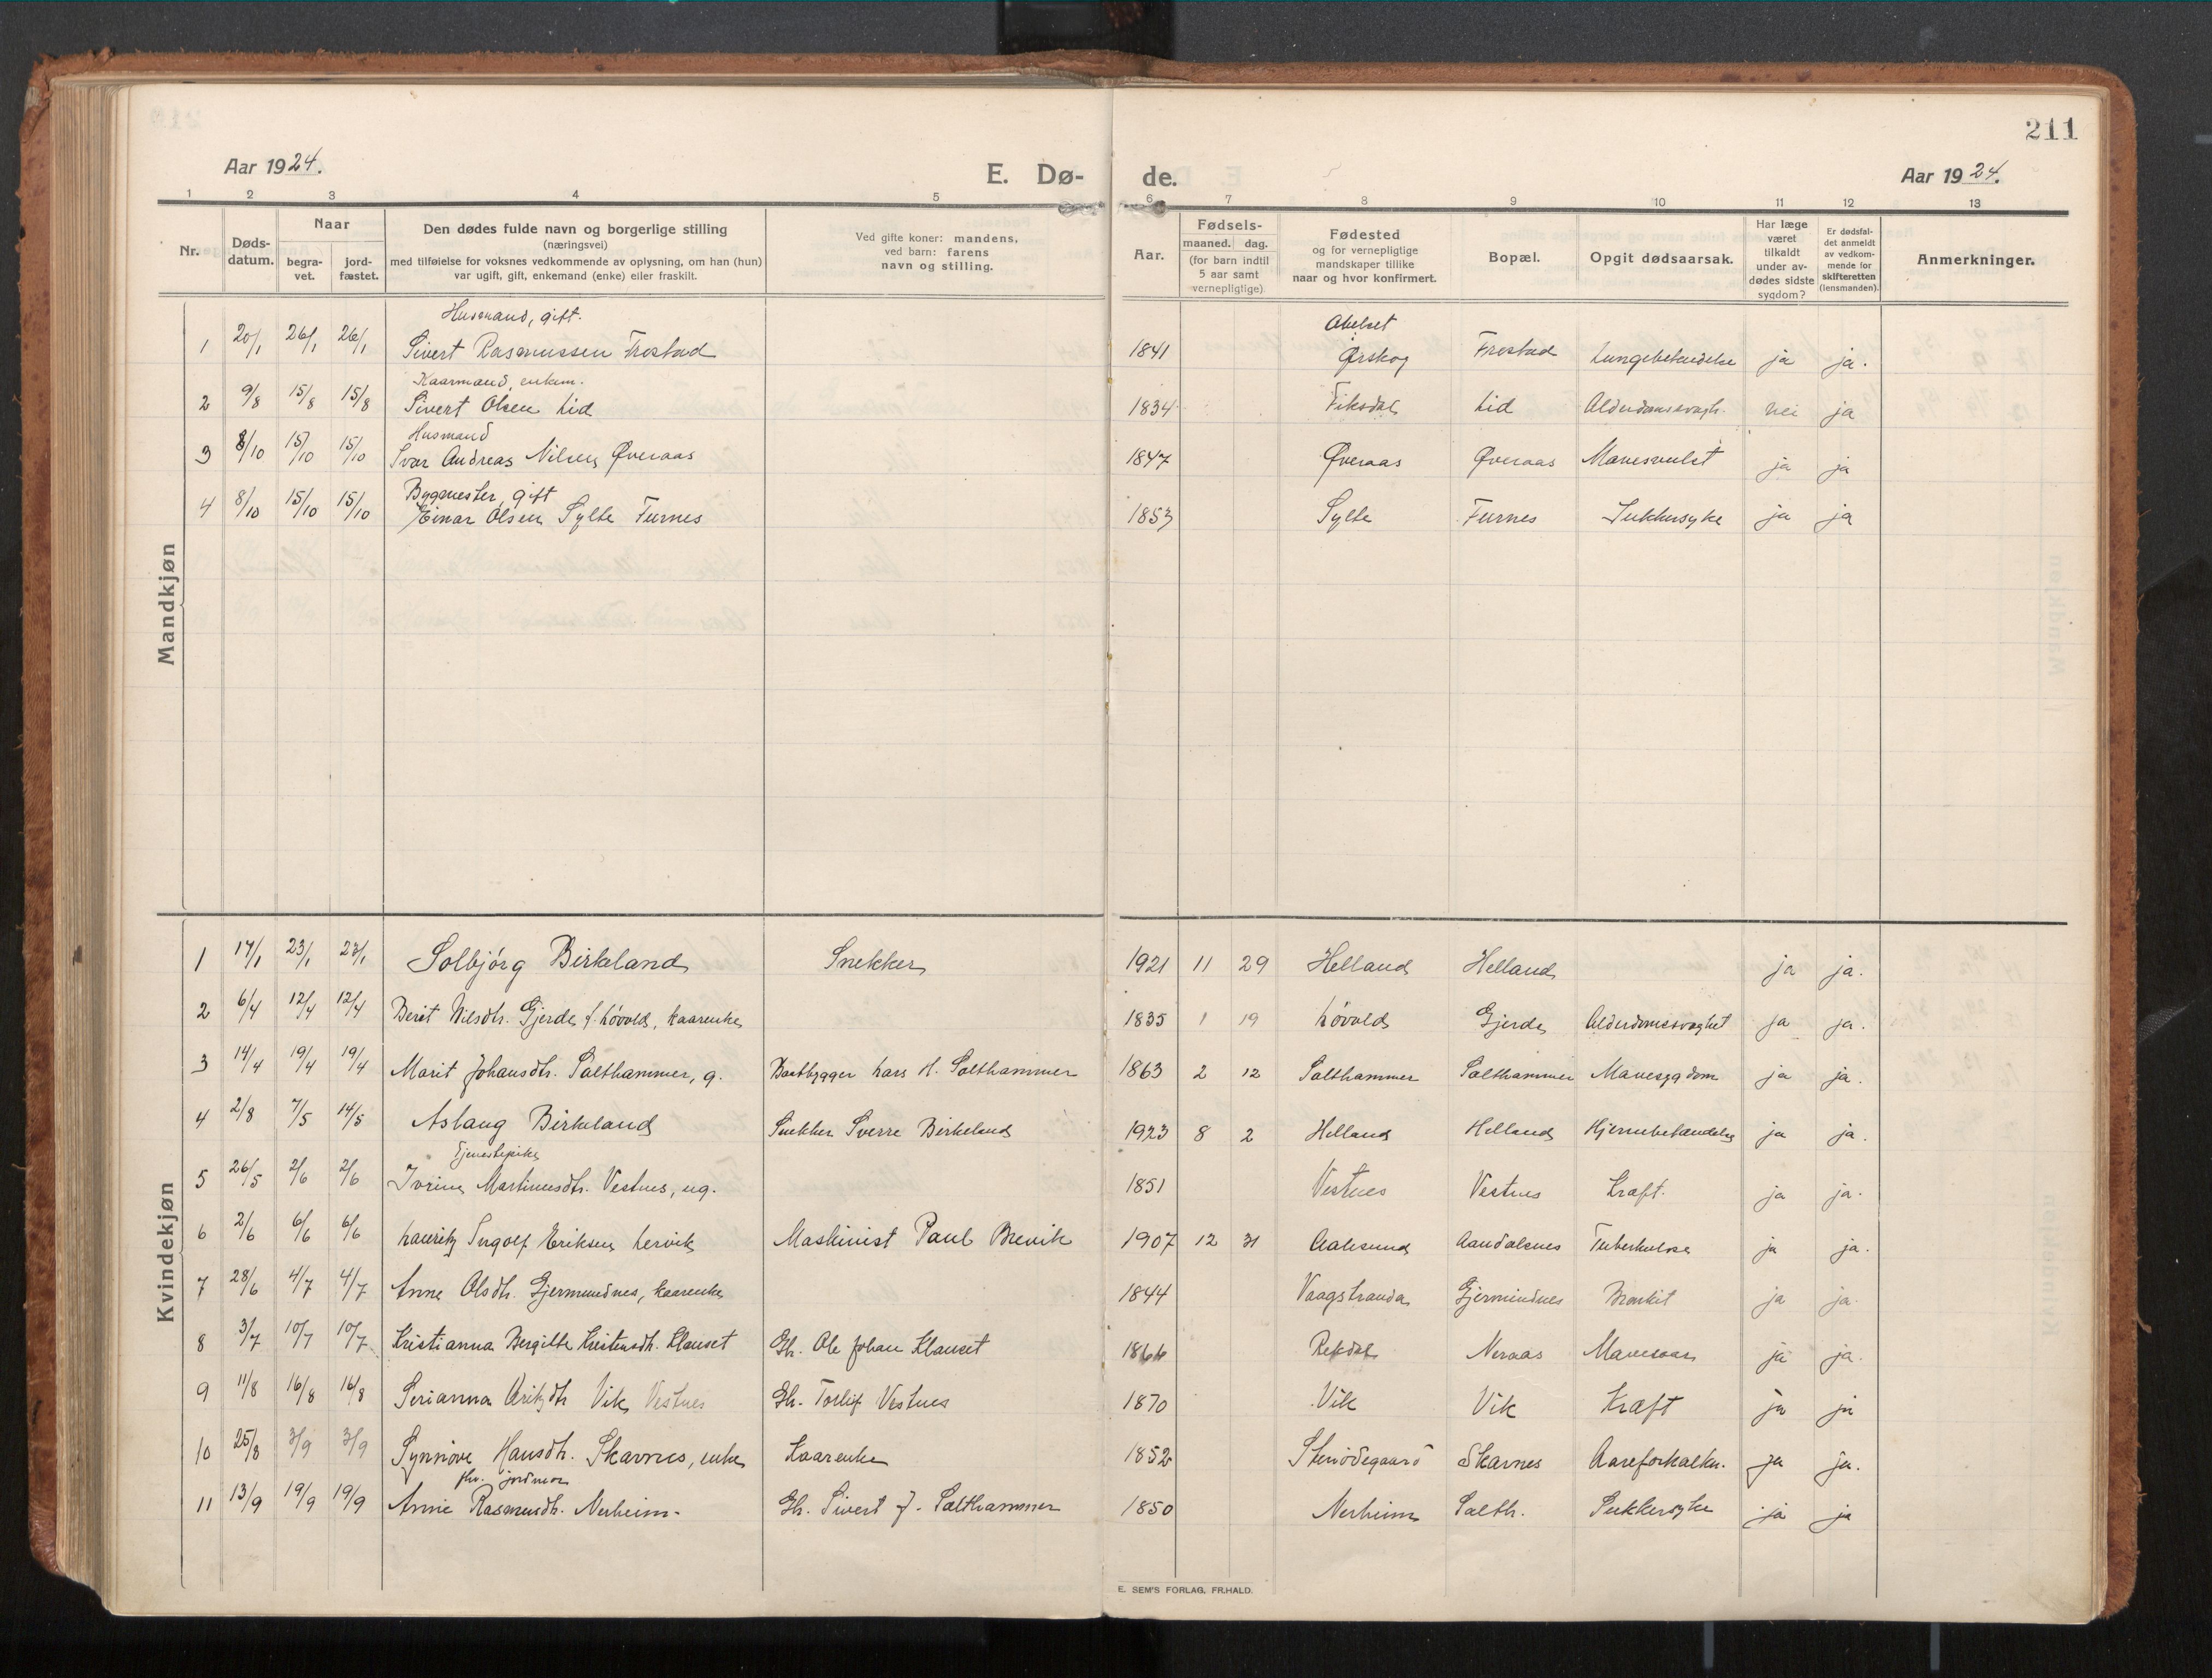 211
Aar 1924.
E. Dø-
de.
Aar 1924.
1 2 3 4 5 6 7 8 9 10 11 12 13
Nr.
Døds-
datum.
Naar
begra-
vet.
jord-
fæstet.
Den dødes fulde navn og borgerlige stilling
(næringsvei)
med tilføielse for voksnes vedkommende av oplysning, om han (hun)
var ugift, gift, enkemand (enke) eller fraskilt.
Ved gifte koner: mandens,
ved barn: farens
navn og stilling.
Aar.
Fødsels-
maaned. dag.
(for barn indtil
5 aar samt
vernepligtige)
Fødested
og for vernepligtige
mandskaper tillike
naar og hvor konfirmert.
Bopæl.
Opgit dødsaarsak.
Har læge
været
tilkaldt
under av-
dødes sidste
sygdom?
Er dødsfal-
det anmeldt
av vedkom-
mende for
skifteretten
(lensmanden).
Anmerkninger.
Mandkjøn
Husmand, gift.
1 20/1 26/1 26/1 Sivert Rasmussen Frostad 1841 Ørskog Frostad Lungebetændelse ja ja.
Kaarmand, enkem.
2 9/8 15/8 15/8 Sivert Olsen Lid 1834 Fiksdal Lid Alderdomssvagh. nei ja
Husmand
3 8/10 15/10 15/10 Ivar Andreas Nilsen Øveraas 1847 Øveraas Øveraas Mavesvulst ja ja
Bygmester, gift
4 8/10 15/10 15/10 Einar Olsen Sylte Furnes 1853 Sylte Furnes Sukkersyke ja ja
Kvindekjøn
1 17/1 23/1 23/1 Solbjørg Birkeland Snekker 1921 11 29 Helland Helland ja ja.
2 6/4 12/4 12/4 Berit Nilsdtr. Gjerde f. Løvold, kaarenke 1835 1 19 Løvold Gjerde Alderdomssvaghet ja ja.
3 14/4 19/4 19/4 Marit Johansdtr. Salthammer, g. Baatbygger Lars H. Salthammer 1863 2 12 Salthammer Salthammer Mavesygdom ja ja.
4 2/8 7/5 14/5 Aslaug Birkeland Snekker Sverre Birkeland 1923 8 2 Helland Helland Hjernebetændelse ja ja.
Tjenestepike
5 26/5 2/6 2/6 Ivrine Martinusdtr. Vestnes, ug. 1851 Vestnes Vestnes Kræft. ja ja.
6 2/6 6/6 6/6 Lauritz Ingolf Eriksen Lervik Maskinist Paul Brevik 1907 12 31 Aalesund Aandalsnes Tuberkulose ja ja.
7 28/6 4/7 4/7 Anne Olsdtr. Gjermundnes, kaarenke 1844 Vaagstranda Gjermundnes Bronkit ja ja.
8 3/7 10/7 10/7 Kristianna Bergitte Kristensdtr. Klauset Gb. Ole Johan Klauset 1866 Rekdal Neraas Mavesaar ja ja.
9 11/8 16/8 16/8 Serianna Vik Vestnes Gb. Torlif Vestnes 1870 Vik Vik Kræft ja ja
10 25/8 3/9 3/9 Synnøve Hansdtr. Skarnes, enke Kaarenke 1852 Skarnes Aareforkalkn. ja ja.
fhv. jordmor
11 13/9 19/9 19/9 Anne Rasmusdtr. Nerheim. Gb. Sivert J. Salthammer 1850 Nerheim Salth. Sukkersyke ja ja
E. SEM'S FORLAG, FR.HALD.